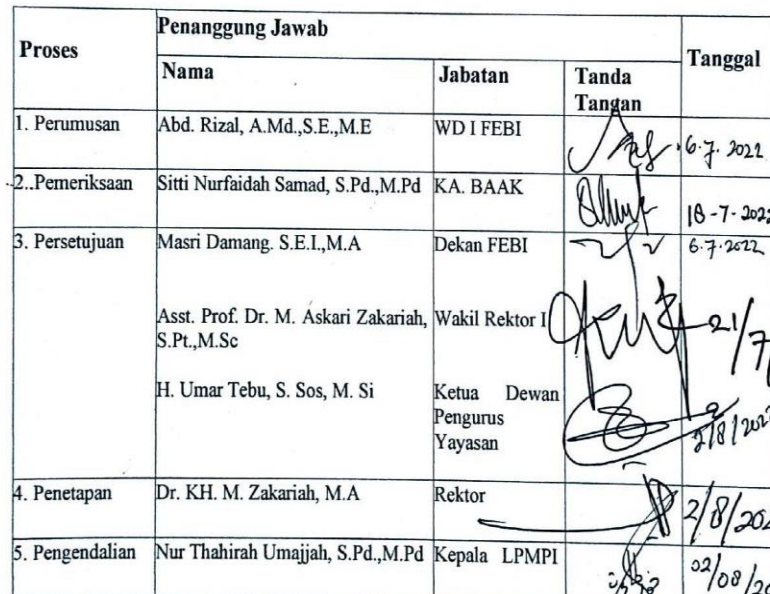 Proses
Penanggung Jawab
Tanggal
Nama
Jabatan
Tanda
Tangan
1. Perumusan
Abd. Rizal, A.Md.,S.E.,M.E
WD I FEBI
6.7.2022
2..Pemeriksaan
Sitti Nurfaidah Samad, S.Pd.,M.Pd
KA. BAAK
18-7-2022
3. Persetujuan
Masri Damang. S.E.I.,M.A
Dekan FEBI
6.7.2022
Asst. Prof. Dr. M. Askari Zakariah,
S.Pt.,M.Sc
Wakil Rektor I
21/7/
H. Umar Tebu, S. Sos, M. Si
Ketua Dewan
Pengurus
Yayasan
2/8/202
4. Penetapan
Dr. KH. M. Zakariah, M.A
Rektor
2/8/202
5. Pengendalian
Nur Thahirah Umajjah, S.Pd.,M.Pd
Kepala LPMPI
02/08/20